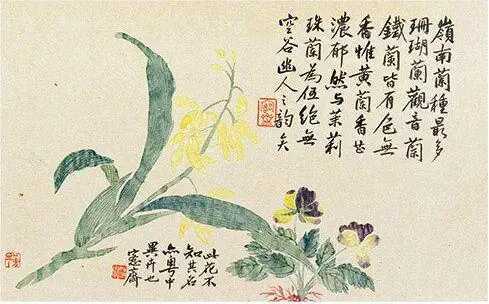 嶺南蘭種最多
珊瑚蘭觀音蘭
鐵蘭皆有色無
香惟黃蘭香甚
濃郁然与茉莉
珠蘭為伍絕無
空谷幽人之韵矣
此花不
知其名
亦粵中
異卉也
愙齋